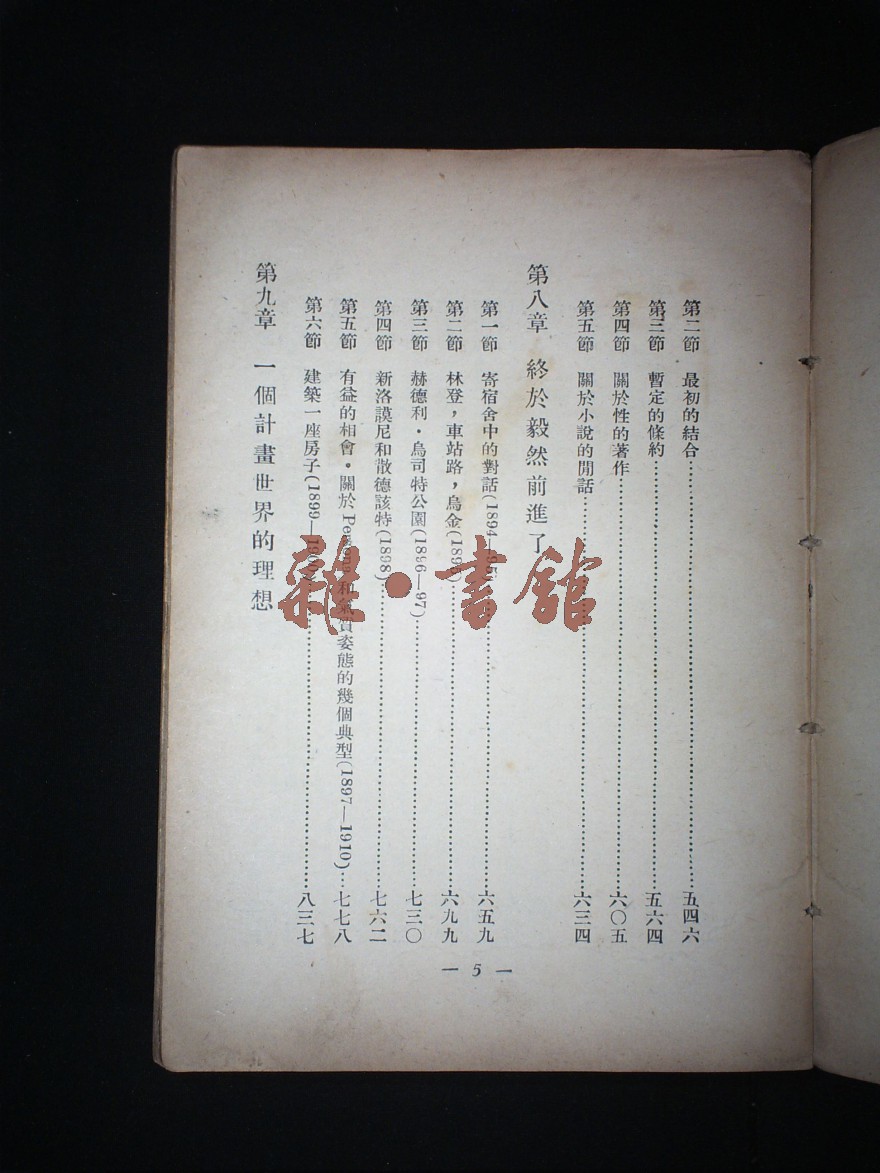 第二節 最初的結合……五四六
第三節 暫定的條約……五六四
第四節 關於性的著作……六〇五
第五節 關於小說的閒話……六三四
第八章 終於毅然前進了
第一節 寄宿舍中的對話(1894—95)……六五九
第二節 林登，車站路，烏金(1895)……六九九
第三節 赫德利·烏司特公園(1896—97)……七三〇
第四節 新洛謨尼和散德該特(1898)……七六二
第五節 有益的相會·關於 和氣質姿態的幾個典型(1897—1910)…七七八
第六節 建築一座房子(1899—1900)……八三七
第九章 一個計畫世界的理想
— 5 —
雜·書館